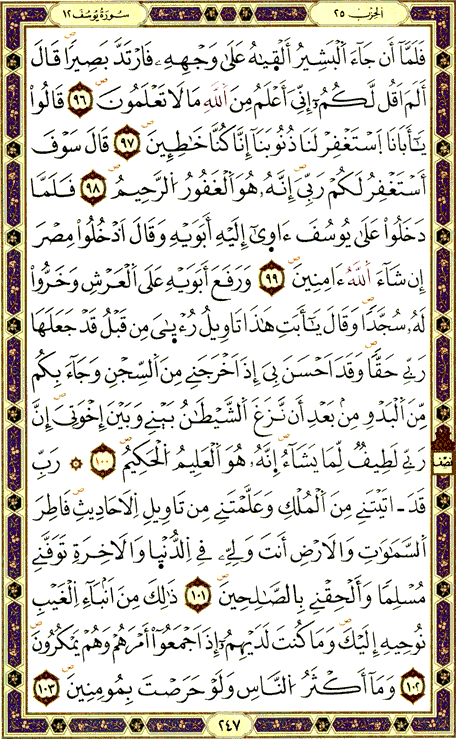 سورة يوسف ١٢
الحزب ٢٥
فَلَمَّا أَن جَاءَ اَ۬لْبَشِيرُ أَلْقَيٰهُ عَلَىٰ وَجْهِهِۦ فَارْتَدَّ بَصِيراٗ قَالَ
أَلَمَ اَقُل لَّكُمُۥ إِنِّيَ أَعْلَمُ مِنَ اَ۬للَّهِ مَا لَا تَعْلَمُونَ ٩٦ قَالُواْ
يَٰٓأَبَانَا اَ۪سْتَغْفِرْ لَنَا ذُنُوبَنَا إِنَّا كُنَّا خَٰطِـِٕينَ ٩٧ قَالَ سَوْفَ
أَسْتَغْفِرُ لَكُمْ رَبِّيَ إِنَّهُۥ هُوَ اَ۬لْغَفُورُ اُ۬لرَّحِيمُ ٩٨ فَلَمَّا
دَخَلُواْ عَلَىٰ يُوسُفَ ءَاو۪يٰٓ إِلَيْهِ أَبَوَيْهِ وَقَالَ اَ۟دْخُلُواْ مِصْرَ
إِن شَآءَ اَ۬للَّهُ ءَامِنِينَ ٩٩ وَرَفَعَ أَبَوَيْهِ عَلَى اَ۬لْعَرْشِ وَخَرُّواْ
لَهُۥ سُجَّداٗ وَقَالَ يَٰٓأَبَتِ هَٰذَا تَاوِيلُ رُءْيٰ۪يَ مِن قَبْلُ قَدْ جَعَلَهَا
رَبِّي حَقّاٗ وَقَدَ اَحْسَنَ بِيَ إِذَ اَخْرَجَنِي مِنَ اَ۬لسِّجْنِ وَجَآءَ بِكُم
مِّنَ اَ۬لْبَدْوِ مِنۢ بَعْدِ أَن نَّزَغَ اَ۬لشَّيْطَٰنُ بَيْنِي وَبَيْنَ إِخْوَتِيَ إِنَّ
رَبِّي لَطِيفٞ لِّمَا يَشَآءُ إِنَّهُۥ هُوَ اَ۬لْعَلِيمُ اُ۬لْحَكِيمُ ١٠٠ ۞ رَبِّ
قَدَ ـ اتَيْتَنِي مِنَ اَ۬لْمُلْكِ وَعَلَّمْتَنِي مِن تَاوِيلِ اِ۬لَاحَادِيثِ فَاطِرَ
اَ۬لسَّمَٰوَٰتِ وَالَارْضِ أَنتَ وَلِيِّۦ فِي اِ۬لدُّنْي۪ا وَالَاخِرَةِ تَوَفَّنِي
مُسْلِماٗ وَأَلْحِقْنِي بِالصَّٰلِحِينَ ١٠١ ذَٰلِكَ مِنَ اَنۢبَآءِ اِ۬لْغَيْبِ
نُوحِيهِ إِلَيْكَ وَمَا كُنتَ لَدَيْهِمُۥ إِذَ اَجْمَعُوٓاْ أَمْرَهُمْ وَهُمْ يَمْكُرُونَ
١٠٢ وَمَآ أَكْثَرُ اُ۬لنَّاسِ وَلَوْ حَرَصْتَ بِمُومِنِينَ ١٠٣
نصف
٢٤٧